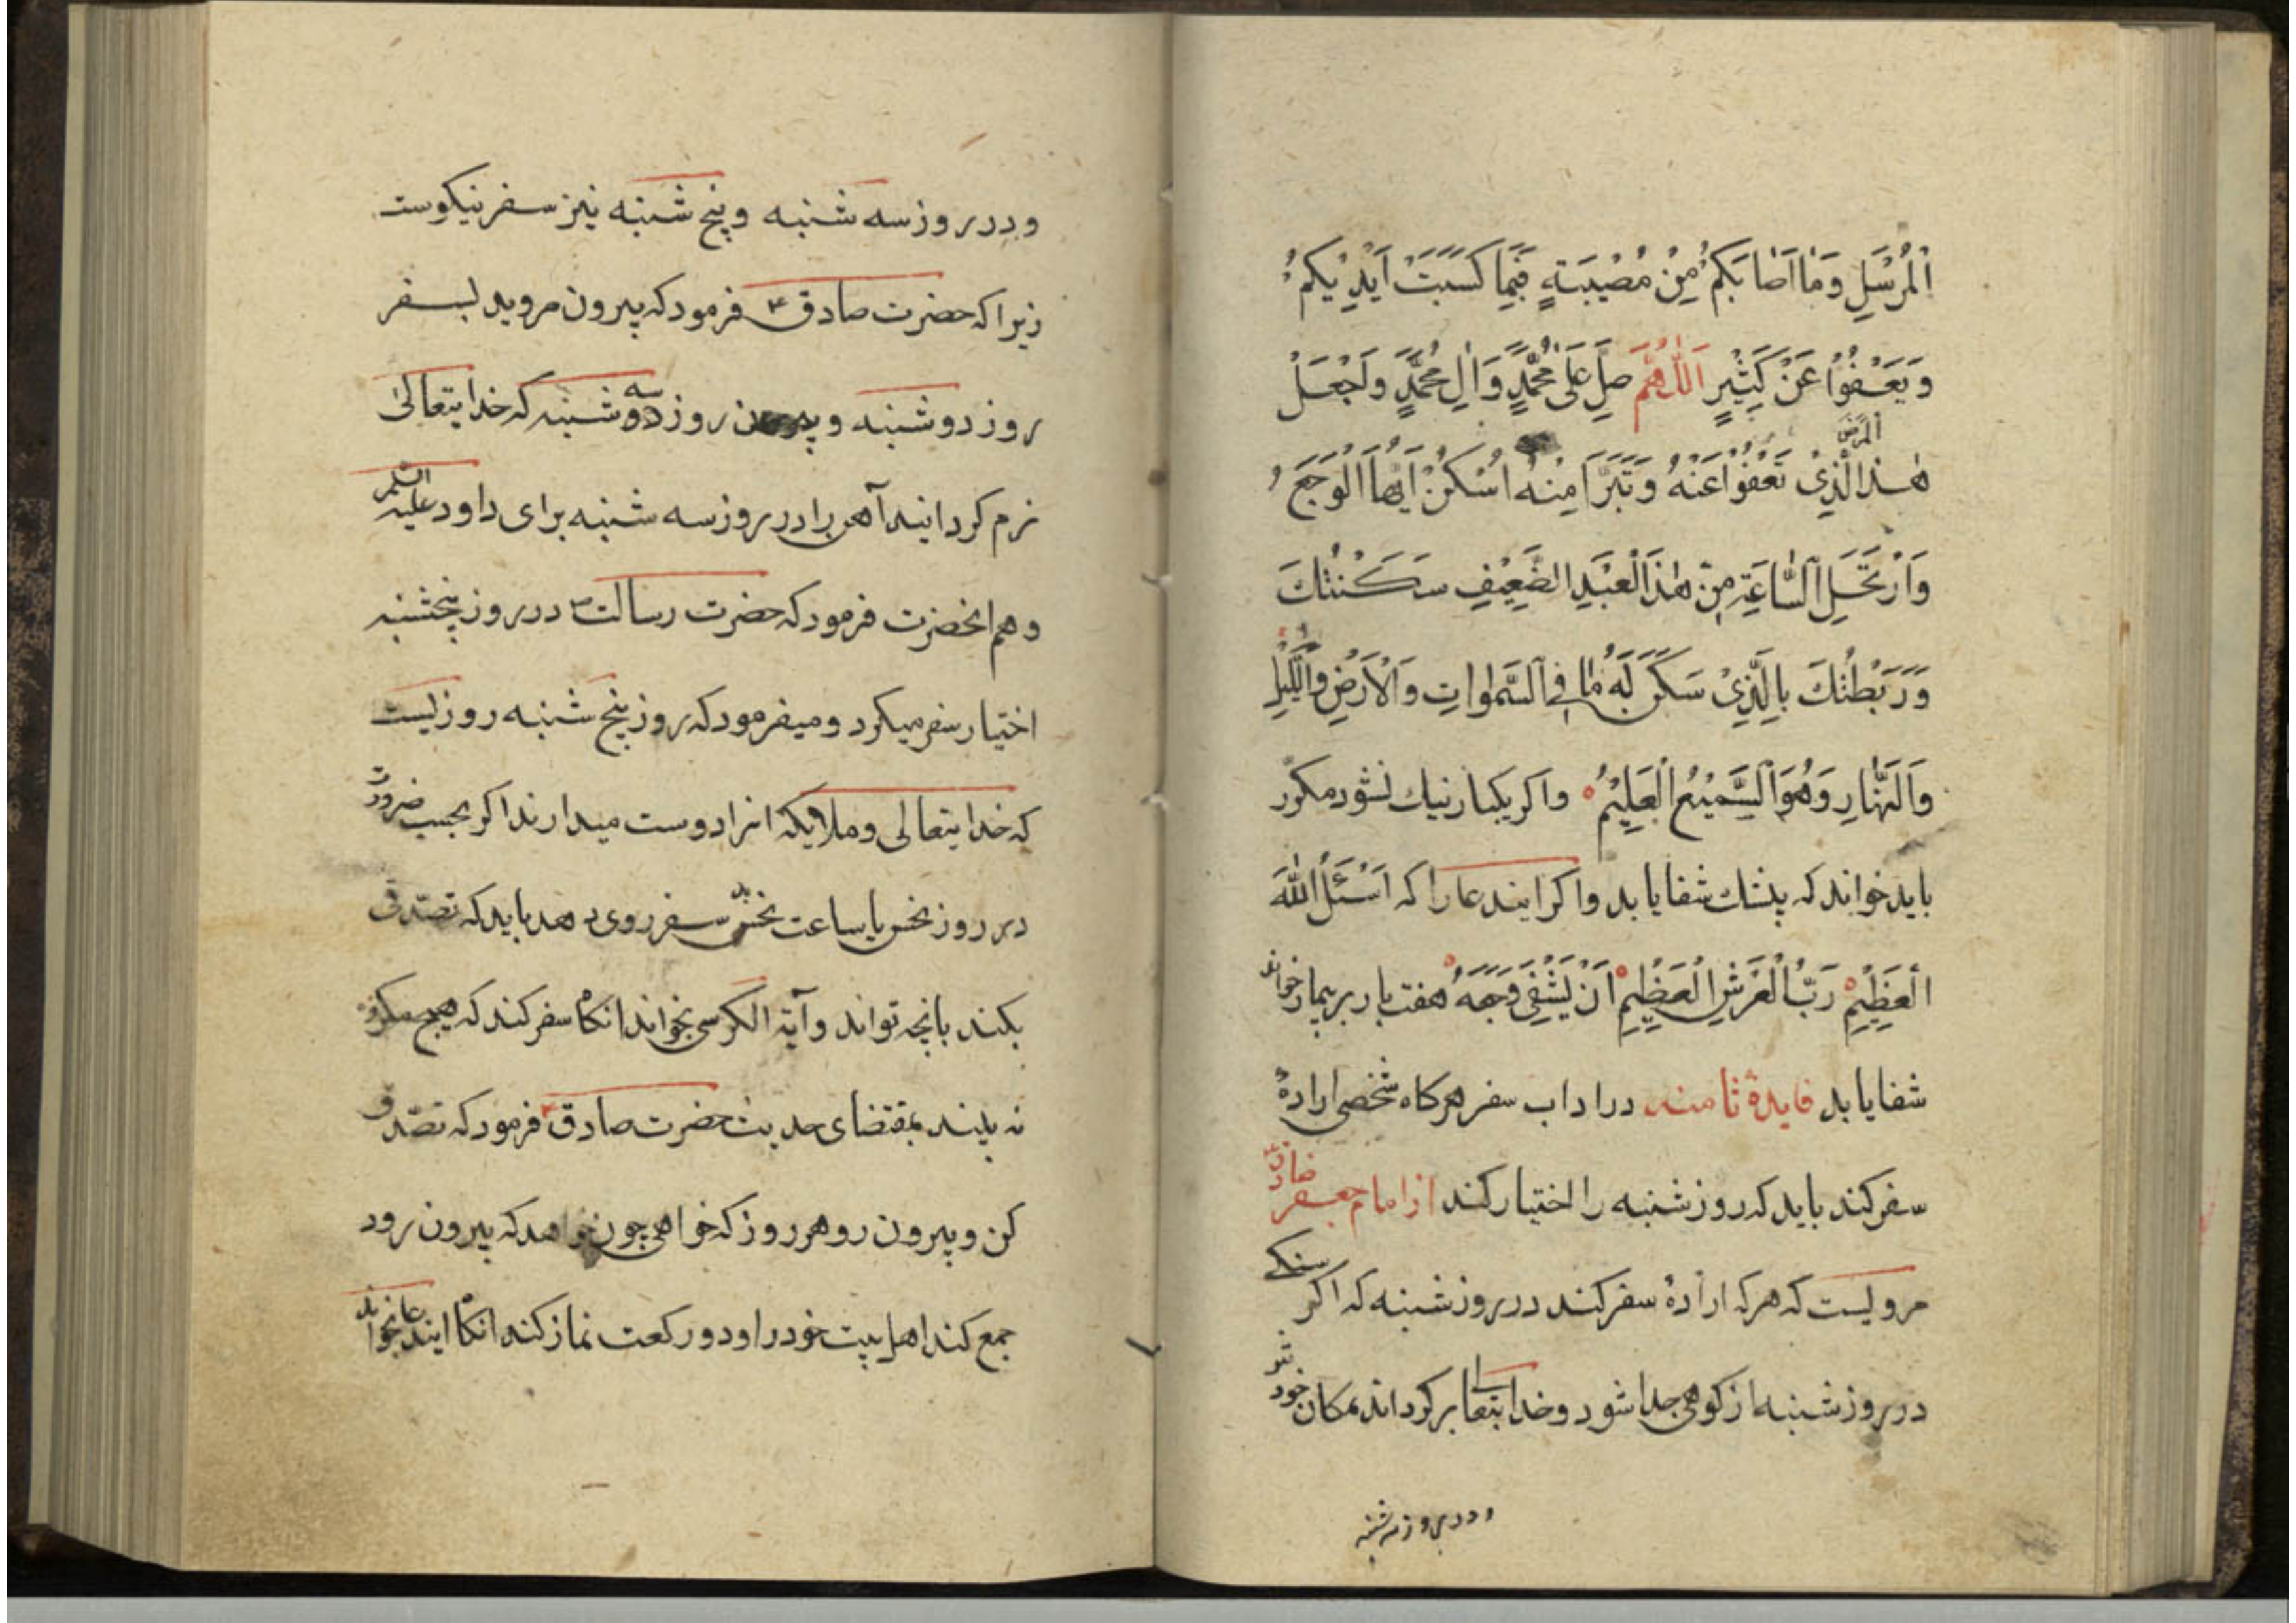 اَلْمُرْسَلِ وَمٰا اَصٰابَكُمْ مِنْ مُصْيبَةٍ فَبِمٰا كَسَبَتْ اَيْدِيْكُمْ
وَيَعْفُوْا عَنْ كَثِيْرٍ اَللّٰهُمَّ صَلِّ عَلىٰ مُحَمَّدٍ وَاٰلِ مُحَمَّدٍ وَاجْعَلْ
هٰذَا الْمَرَضَ الَّذِىْ تَعْفُوْا عَنْهُ وَتَبَرَّا مِنْهُ اُسْكُنْ اَيُّهَا الْوَجَعُ
وَارْتَحِلِ السّٰاعَةِ مِنْ هٰذَا الْعَبْدِ الضَّعِيْفِ سَكَنْتُكَ
وَرَبَطْتُكَ بِالَّذِىْ سَكَنَ لَهُ مٰا فِى السَّمٰوٰاتِ وَالْاَرْضِ وَاللَّيْلِ
وَالنَّهٰارِ وَهُوَ السَّمِيْعُ الْعَلِيْمُ واكر يكبار نيك نشود مكرر
بايد خواند كه بيشك شفا يابد واكر ايندعا را كه اَسْئَلُ اللّٰهَ
الْعَظِيْمِ رَبُّ الْعَرْشِ الْعَظِيْمِ اَنْ يَشْفِىَ وَجَعَهُ هفت بار بر بيمار خواند
شفا يابد فايدهٔ ثامنه در اداب سفر هركاه شخصى ارادهٔ
سفر كند بايد كه روز شنبه را اختيار كند از امام جعفر صادق
مرويست كه هركه ارادهٔ سفر كند در روز شنبه كه اكر سنكى
در روز شنبه از كوهى جدا شود وخدايتعالى بركرداند بمكان خود
ودر روز سه شنبه
ودر روز سه شنبه وپنج شنبه نيز سفر نيكوست
زيرا كه حضرت صادق ع فرمود كه بيرون مرويد بسفر
روز دوشنبه و روز سه شنبه كه خدايتعالىٰ
نرم كردانيد آهن را در روز سه شنبه براى داود عليه السلم
وهم انحضرت فرمود كه حضرت رسالت ص در روز پنجشنبه
اختيار سفر ميكرد وميفرمود كه روز پنج شنبه روزيست
كه خدايتعالى وملايكه انرا دوست ميدارند اكر بحسب ضرورت
در روز نحس يا ساعت نحس سفر روى دهد بايد كه تصدق
بكند بانچه تواند وآية الكرسى بخواند انكاه سفر كند كه هيچ مكروه
نه بيند بمقتضاى حديث حضرت صادق ع فرمود كه تصدق
كن وبيرون رو هر روز كه خواهى چون خواهد كه بيرون رود
جمع كند اهل بيت خود را ودو ركعت نماز كند انكاه ايندعا بخواند